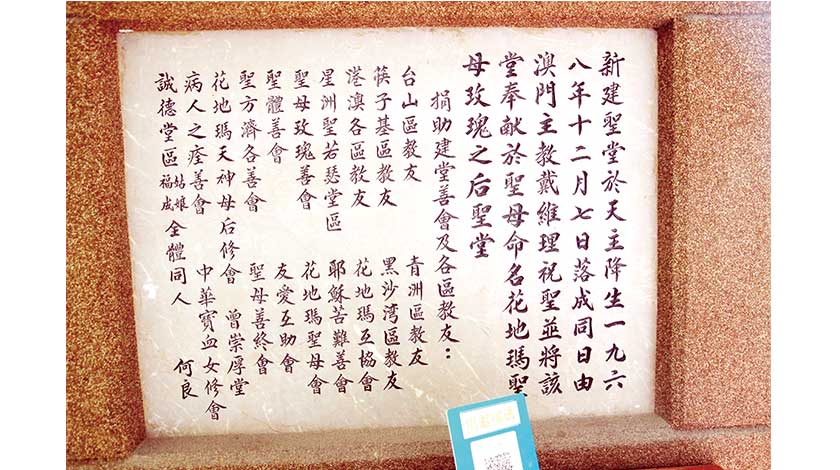 新建聖堂於天主降生一九六
八年十二月七日落成同日由
澳門主教戴維理祝聖並將該
堂奉献於聖母命名花地瑪聖
母玫瑰之后聖堂
捐助建堂善會及各區教友：
台山區教友 青洲區教友
筷子基區教友 黑沙湾區教友
港澳各區教友 花地瑪互協會
星洲聖若瑟堂區 耶穌苦難善會
聖母玫瑰善會 花地瑪聖母會
聖體善會 友愛互助會
聖方濟各善會 聖母善終會
花地瑪天神母后修會 曾崇厚堂
病人之痊善會 中華寳血女修會
誠德堂區姑娘福成全體同人 何良